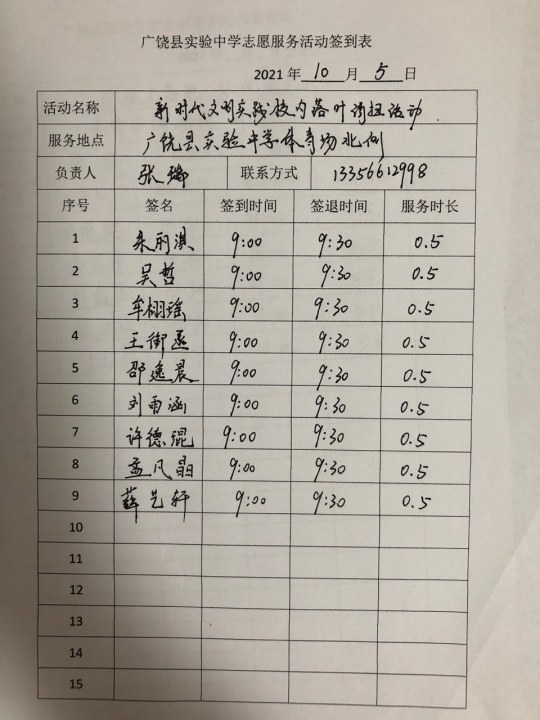 广饶县实验中学志愿服务活动签到表
2021 年 10 月 5 日
活动名称 新时代文明实践校内落叶清扫活动
服务地点 广饶县实验中学体育场北侧
负责人 张瑞 联系方式 13356612998
序号 签名 签到时间 签退时间 服务时长
1 9:00 9:30 0.5
2 吴哲 9:00 9:30 0.5
3 牟栩瑶 9:00 9:30 0.5
4 王御丞 9:00 9:30 0.5
5 邵逸晨 9:00 9:30 0.5
6 刘雨涵 9:00 9:30 0.5
7 许德琨 9:00 9:30 0.5
8 孟凡晶 9:00 9:30 0.5
9 薛艺轩 9:00 9:30 0.5
10
11
12
13
14
15